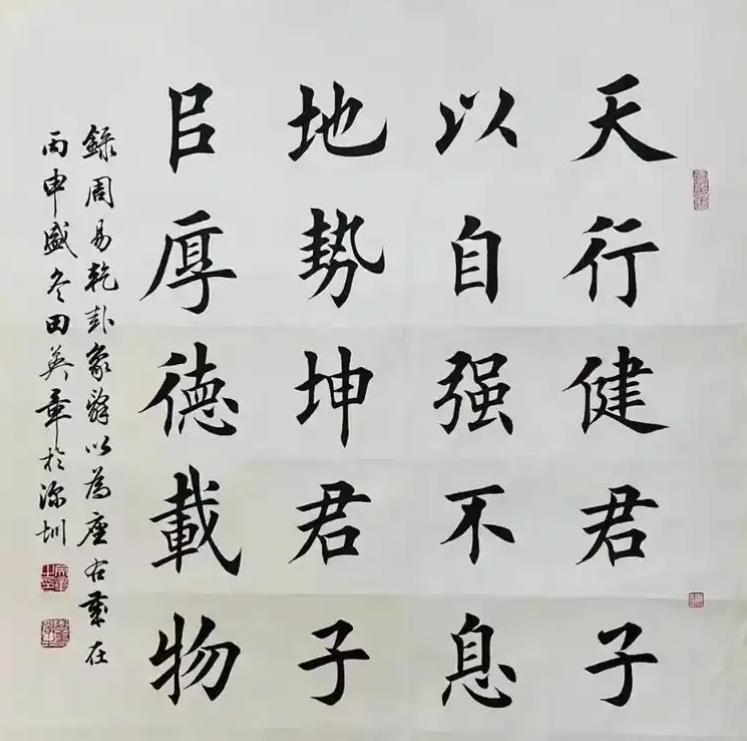 天行健君子
以自强不息
地势坤君子
㠯厚德載物
録周易乾卦象辞以為座右歲在
丙申盛冬田英章於深圳